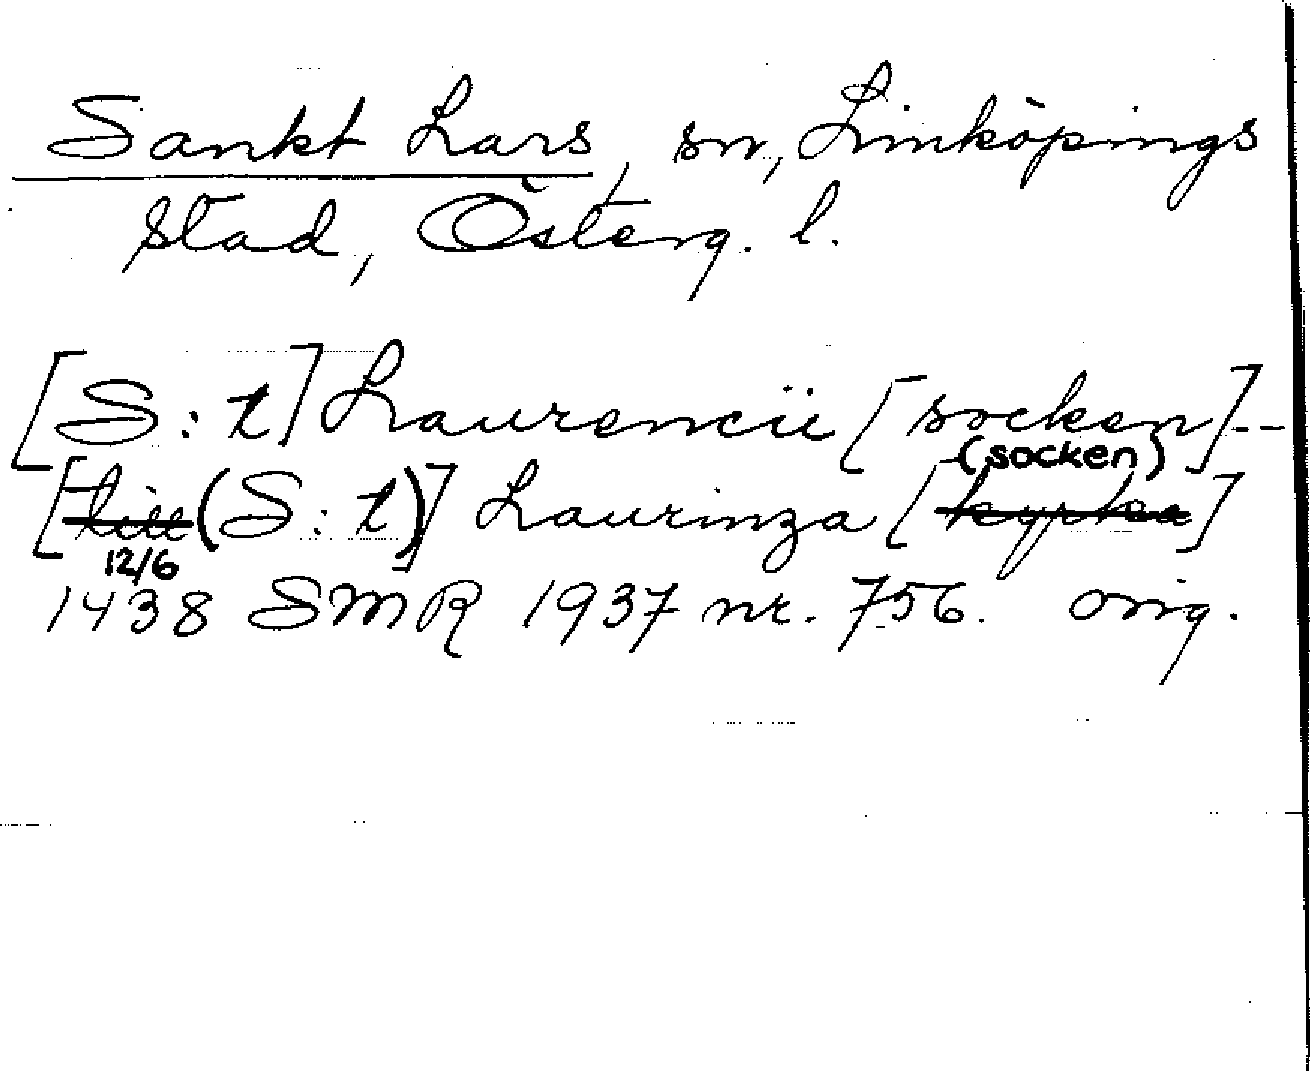 Sankt Lars, sn, Linköpings
stad, Österg. l.
[S:t] Laurencii [socken] --
(socken)
[till (S:t)] Laurinza [kyrka]
12/6
1438 SMR 1937 nr. 756. orig.